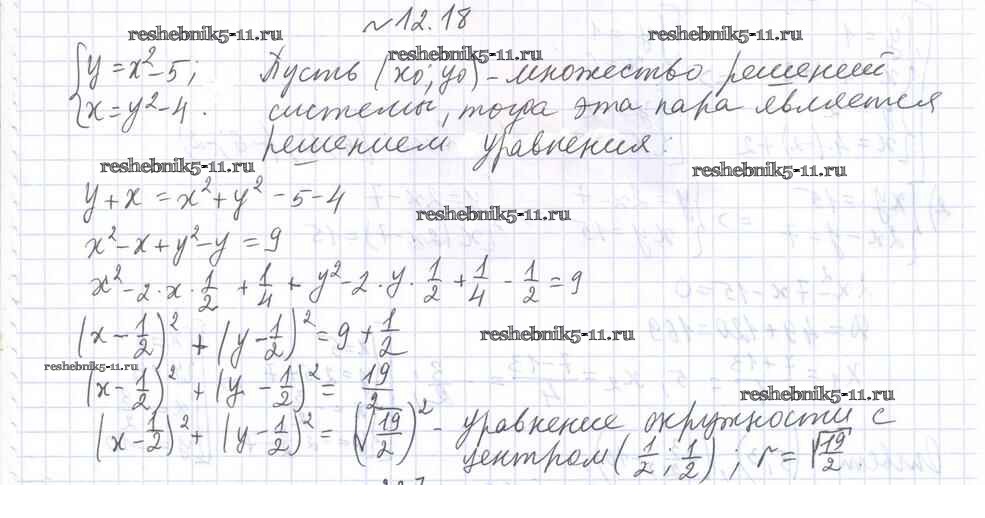 №12.18
reshebnik5-11.ru reshebnik5-11.ru reshebnik5-11.ru
{ y = x² - 5; Пусть (x₀; y₀) - множество решений
x = y² - 4. системы, тогда эта пара является
решением уравнения:
reshebnik5-11.ru reshebnik5-11.ru
y + x = x² + y² - 5 - 4
reshebnik5-11.ru
x² - x + y² - y = 9
x² - 2·x·1/2 + 1/4 + y² - 2·y·1/2 + 1/4 - 1/2 = 9
(x - 1/2)² + (y - 1/2)² = 9 + 1/2
reshebnik5-11.ru
reshebnik5-11.ru
(x - 1/2)² + (y - 1/2)² = 19/2
reshebnik5-11.ru
(x - 1/2)² + (y - 1/2)² = (√19/2)² - уравнение окружности с
центром (1/2; 1/2); r = √19/2.